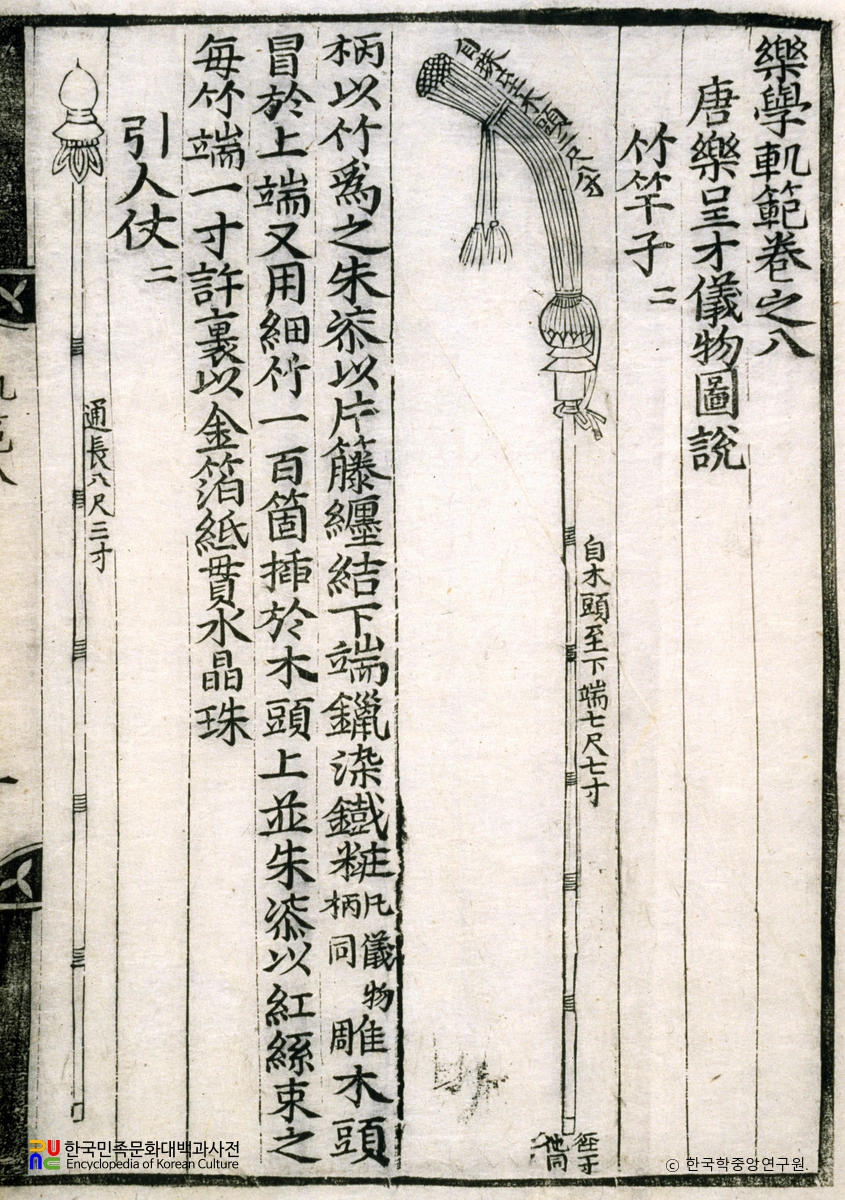 樂學軌範卷之八
唐樂呈才儀物圖說
竹竿子二
自木頭至下端七尺七寸
柄以竹爲之朱漆以片籐纏結下端鑞染鐵粧凡儀物柄同雕木頭
冒於上端又用細竹一百箇揷於木頭上並朱漆以紅絲束之
每竹端一寸許裹以金箔紙貫水晶珠
引人仗二
通長八尺三寸
한국민족문화대백과사전
Encyclopedia of Korean Culture
ⓒ 한국학중앙연구원.